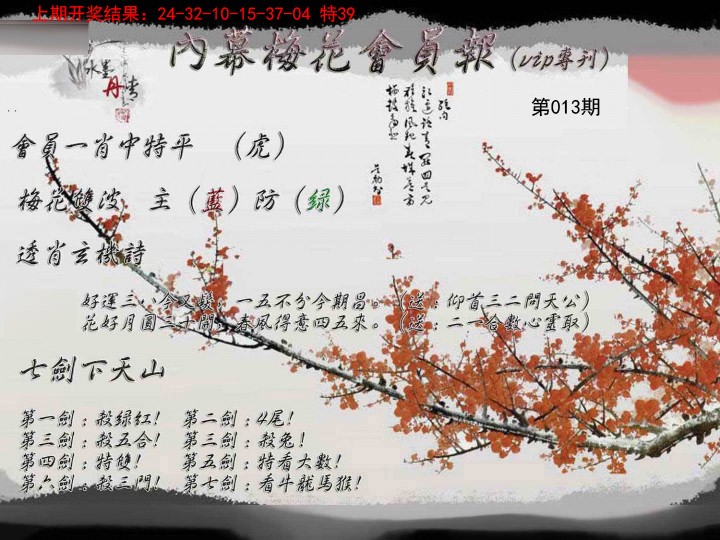 上期开奖结果: 24-32-10-15-37-04 特39
水墨
丹青
內幕梅花會員報(vip專刊)
第013期
會員一肖中特平 (虎)
梅花雙波 主(藍)防(绿)
透肖玄機詩
好運三八今又發，一五不分今期昌。(送:仰首三二問天公)
花好月圓三十開，春風得意四五來。(送:二一合數心靈取)
七劍下天山
第一劍:殺綠紅! 第二劍:4尾!
第三劍:殺五合! 第三劍:殺兔!
第四劍:特雙! 第五劍:特看大數!
第六劍:殺三門! 第七劍:看牛龍馬猴!